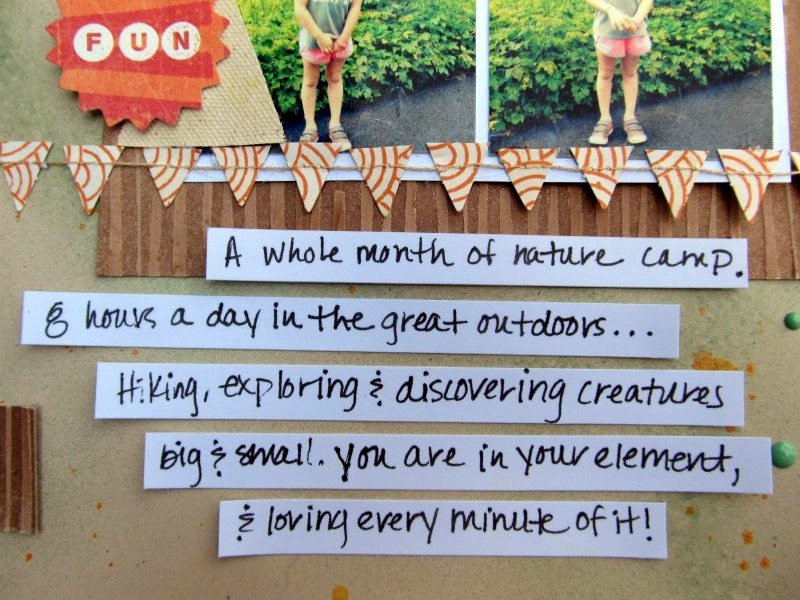 FUN
A whole month of nature camp.
8 hours a day in the great outdoors...
Hiking, exploring & discovering creatures
big & small. you are in your element,
& loving every minute of it!